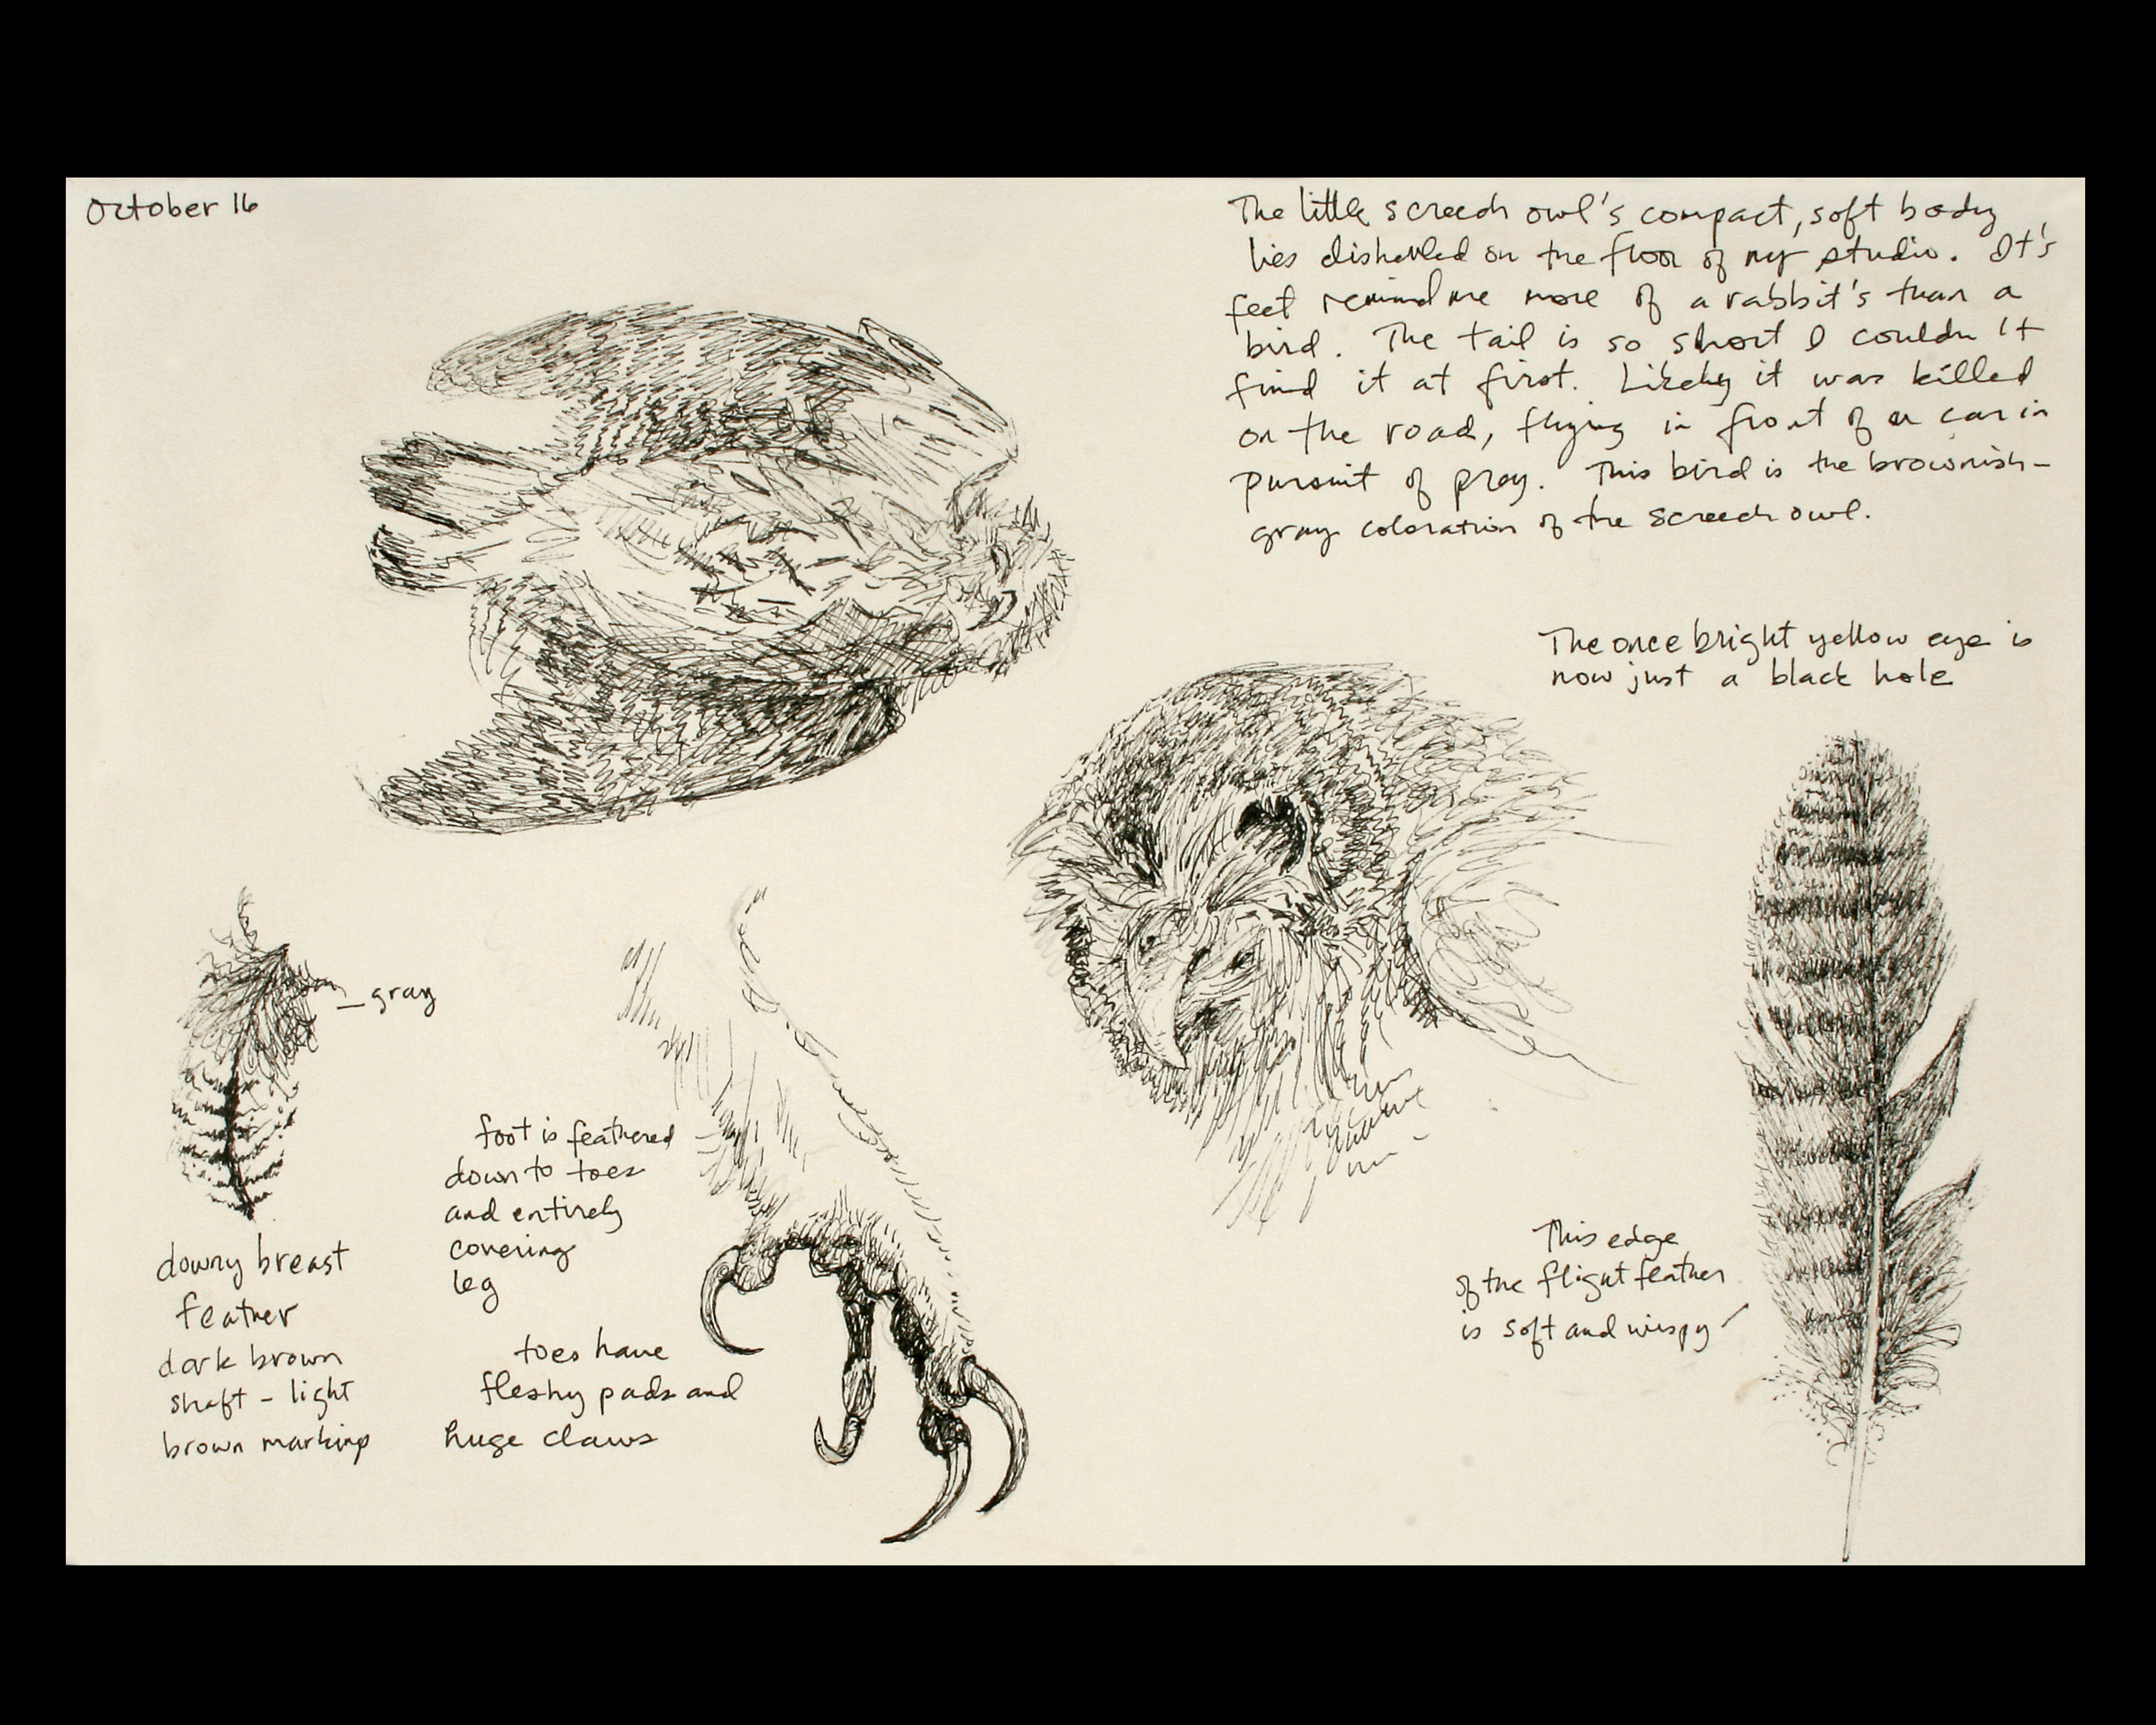 October 16
The little screech owl's compact, soft body
lies dishevled on the floor of my studio. It's
feet remind me more of a rabbit's than a
bird. The tail is so short I couldn't
find it at first. Likely it was killed
on the road, flying in front of a car in
pursuit of prey. This bird is the brownish-
gray coloration of the screech owl.
The once bright yellow eye is
now just a black hole
gray
downy breast
feather
dark brown
shaft - light
brown markings
foot is feathered
down to toes
and entirely
covering
leg
toes have
fleshy pads and
huge claws
This edge
of the flight feather
is soft and wispy